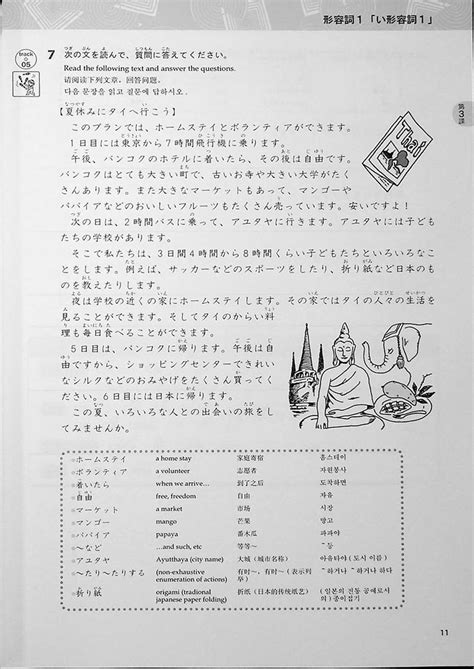 形容詞1「い形容詞1」
track
05
7 次の文を読んで、質問に答えてください。
Read the following text and answer the questions.
请阅读下列文章，回答问题。
다음 문장을 읽고 질문에 답하시오.
【夏休みにタイへ行こう】
このプランでは、ホームステイとボランティアができます。
1日目には東京から7時飛行機に乗ります。
午後、バンコクのホテルに着いたら、その後は自由です。
バンコクはとても大きい町で、古いお寺や大きい大学がたく
さんあります。また大きなマーケットもあって、マンゴーや
パパイアなどのおいしいフルーツもたくさん売っています。安いですよ！
次の日は、2時間バスに乗って、アユタヤに行きます。アユタヤには子ども
たちの学校があります。
そこで私たちは、3日間4時間から8時間くらい子どもたちといろいろなこ
とをします。例えば、サッカーなどのスポーツをしたり、折り紙など日本のも
のを教えたりします。
夜は学校の近くの家にホームステイします。その家ではタイの人々の生活を
見ることができます。そしてタイのからい料
理も毎日食べることができます。
5日目は、バンコクに帰ります。午後は自
由ですから、ショッピングセンターできれい
なシルクなどのおみやげをたくさん買ってく
ださい。6日目には日本に帰ります。
この夏、いろいろな人との出会いの旅をし
てみませんか。
Thai
第3課
ホームステイ a home stay 家庭寄宿 홈스테이
ボランティア a volunteer 志愿者 자원봉사
着いたら when we arrive… 到了之后 도착하면
自由 free, freedom 自由 자유
マーケット a market 市场 시장
マンゴー mango 芒果 망고
パパイア papaya 番木瓜 파파야
～など …and such, etc 等等～ ～등
アユタヤ Ayutthaya (city name) 大城（城市名称） 아유타야 (도시 이름)
～たり～たりする (non-exhaustive 有时～，有时～（表示列 ～하거나 ～하거나 하다
enumeration of actions) 举）
折り紙 origami (tradional 折纸（日本的传统纸艺） (일본의 전통 공예로서
japanese paper folding) 의) 종이접기
11